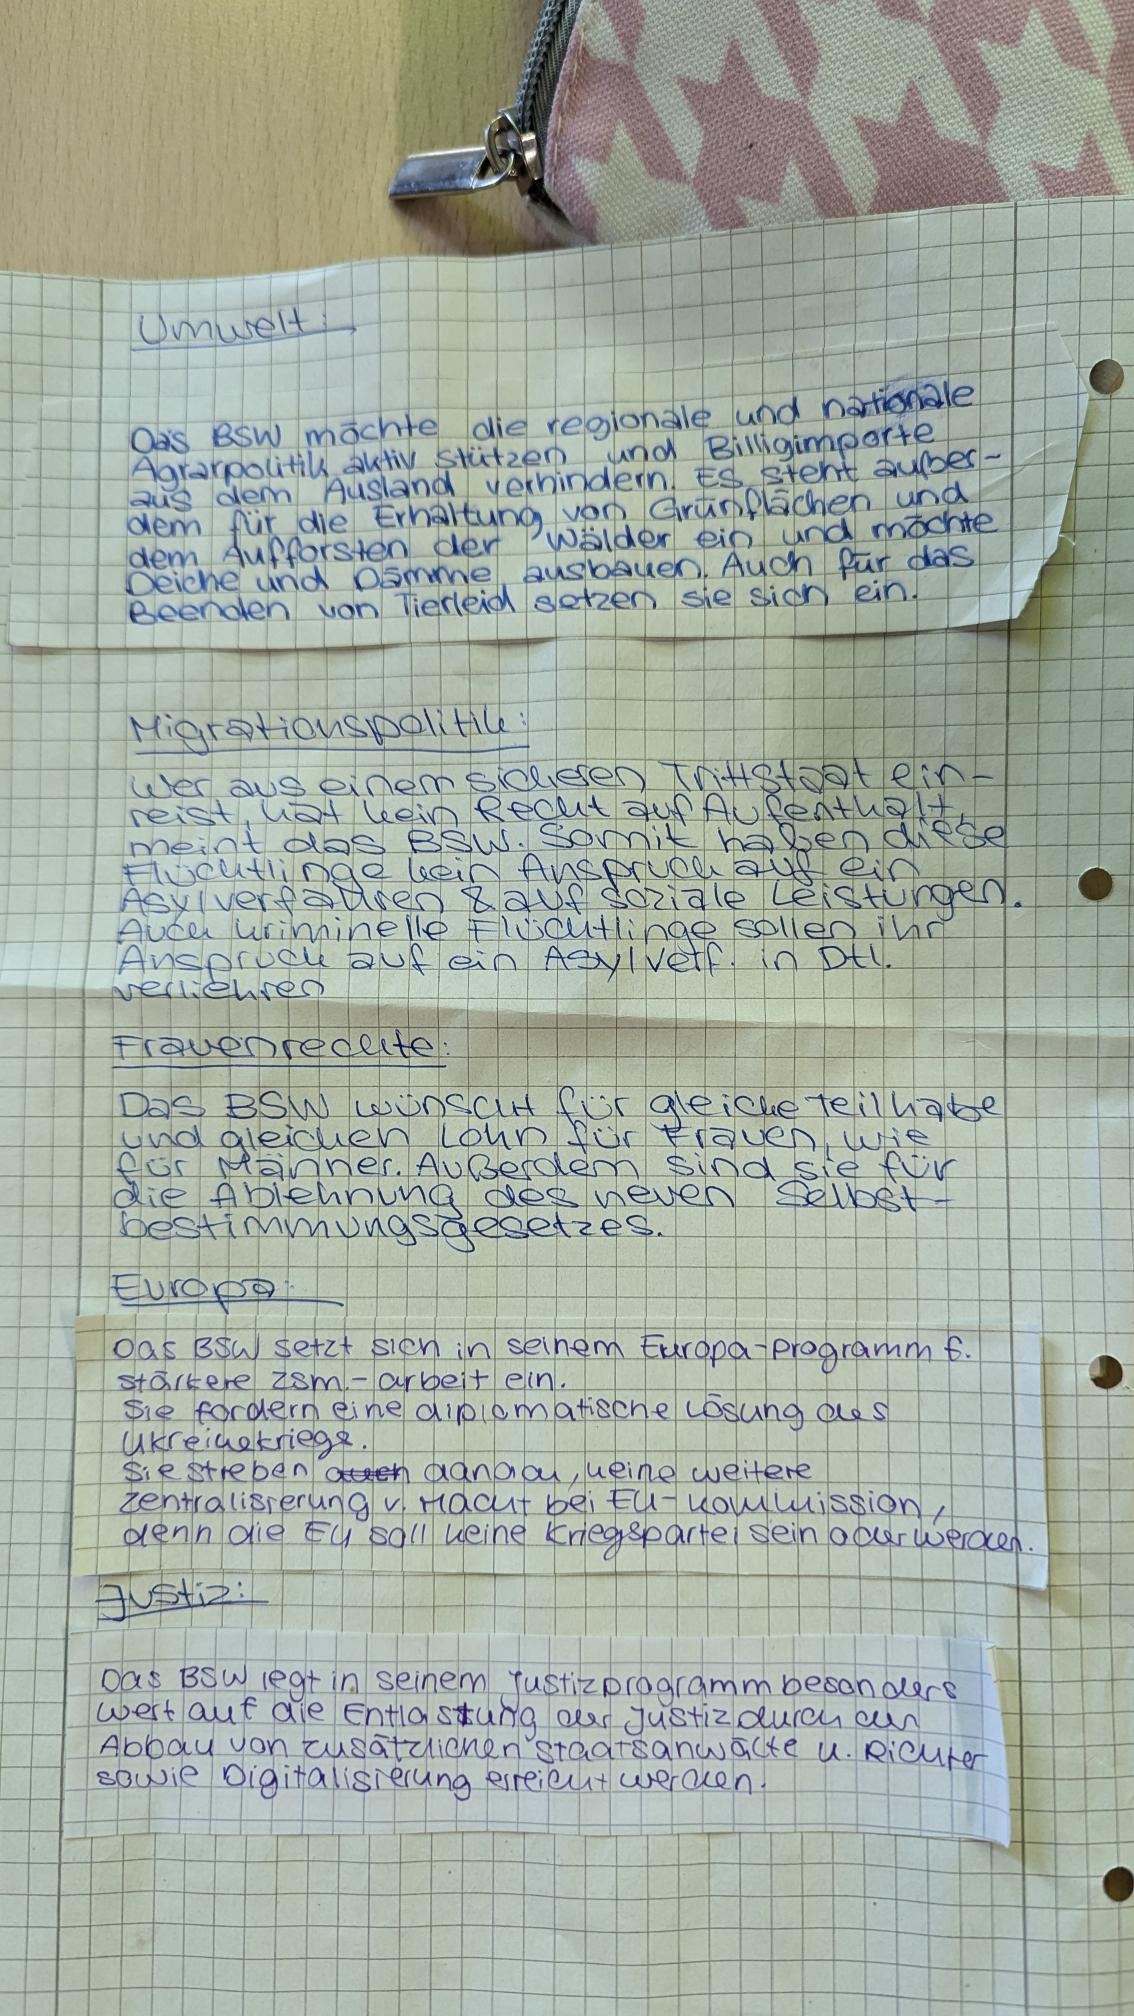 Umwelt:
Das BSW möchte die regionale und nationale
Agrarpolitik aktiv stützen und Billigimporte
aus dem Ausland verhindern. Es steht außer-
dem für die Erhaltung von Grünflächen und
dem Aufforsten der Wälder ein und möchte
Deiche und Dämme ausbauen. Auch für das
Beenden von Tierleid setzen sie sich ein.
Migrationspolitik:
Wer aus einem sicheren Trittstaat ein-
reist, hat kein Recht auf Aufenthalt,
meint das BSW. Somit haben diese
Flüchtlinge kein Anspruch auf ein
Asylverfahren & auf soziale Leistungen.
Auch kriminelle Flüchtlinge sollen ihr
Anspruch auf ein Asylverf. in Dtl.
verliehren
Frauenrechte:
Das BSW wünscht für gleiche Teilhabe
und gleichen Lohn für Frauen, wie
für Männer. Außerdem sind sie für
die Ablehnung des neuen Selbst-
bestimmungsgesetzes.
Europa:
Das BSW setzt sich in seinem Europa-Programm f.
stärkere zsm.-arbeit ein.
Sie fordern eine diplomatische Lösung des
Ukreinekriegs.
Sie streben danach, keine weitere
Zentralisierung v. Macht bei EU-Kommission,
denn die EU soll keine Kriegspartei sein oder werden.
Justiz:
Das BSW legt in seinem Justizprogramm besonders
Wert auf die Entlastung der Justiz durch den
Abbau von zusätzlichen Staatsanwälte u. Richter
sowie Digitalisierung erreicht werden.